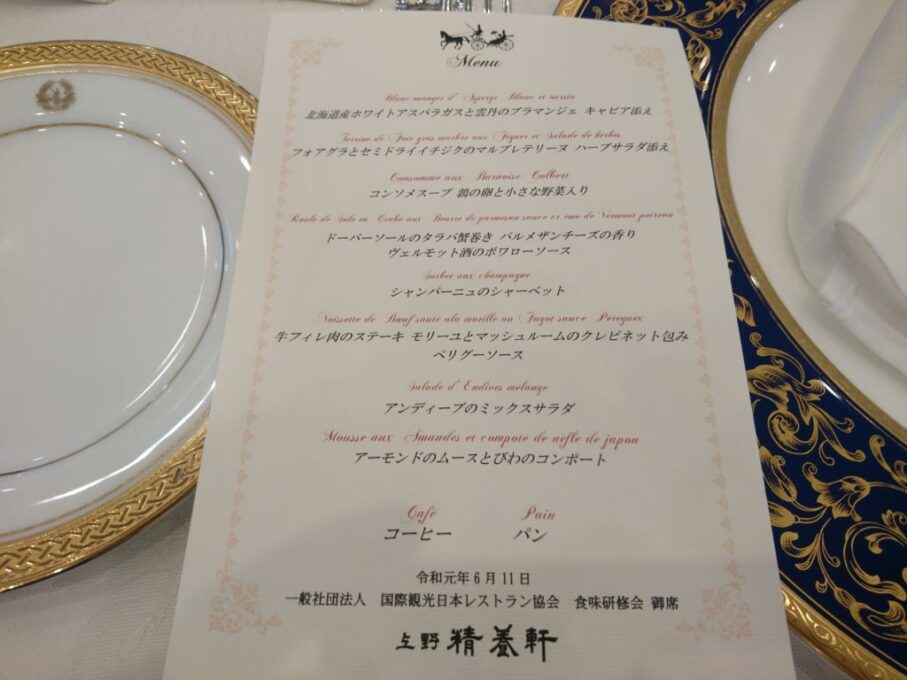 Menu
Blanc-manger d' Asperge Blanc et oursin
北海道産ホワイトアスパラガスと雲丹のブラマンジェ キャビア添え
Terrine de Foie gras marbre aux Figues et Salade de herbes
フォアグラとセミドライイチジクのマルブレテリーヌ ハーブサラダ添え
Consommé aux Burnoise Colbert
コンソメスープ 鶉の卵と小さな野菜入り
Roule de Sole en Crabe aux Beurre de parmesan sauce creme de Vermont poireau
ドーバーソールのタラバ蟹巻き パルメザンチーズの香り
ヴェルモット酒のポワローソース
Sorbet aux champagne
シャンパーニュのシャーベット
Noissette de Bœuf saute ala morille au Fagot sauce Pereguex
牛フィレ肉のステーキ モリーユとマッシュルームのクレピネット包み
ペリグーソース
Salade d' Endives melange
アンディーブのミックスサラダ
Mousse aux Amandes et compote de nefle de japon
アーモンドのムースとびわのコンポート
Café Pain
コーヒー パン
令和元年6月11日
一般社団法人 国際観光日本レストラン協会 食味研修会 御席
上野 精養軒